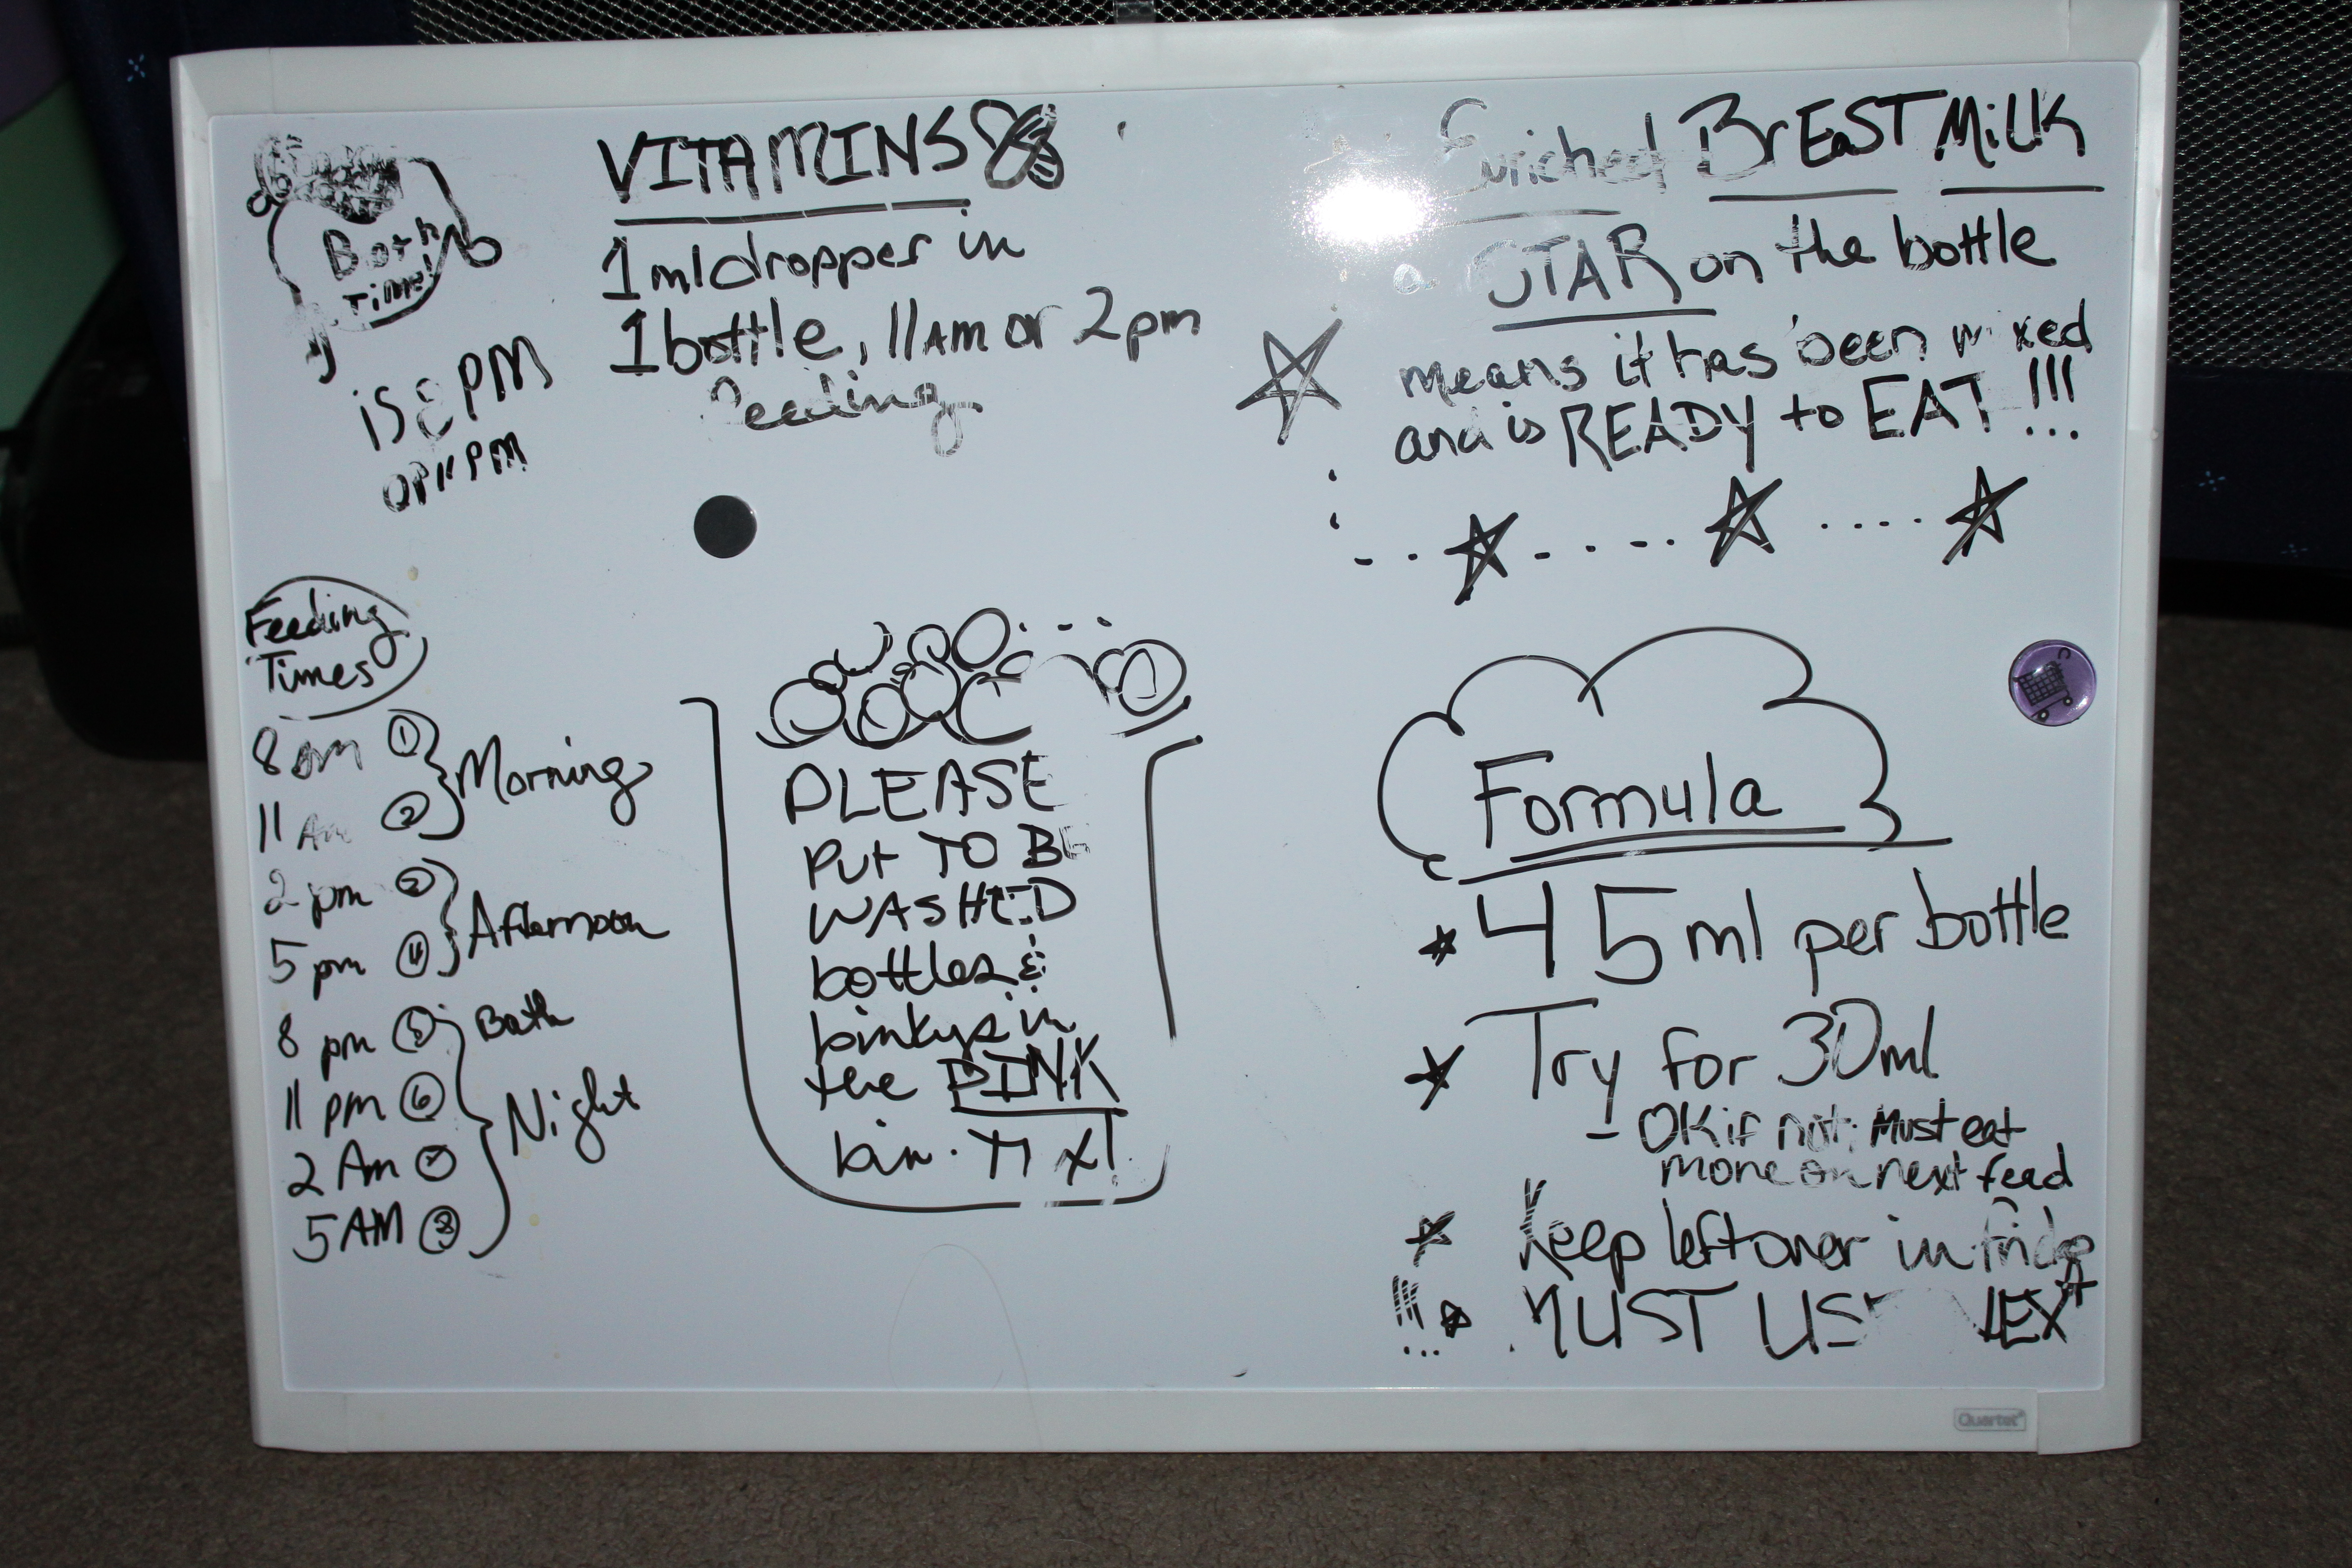 Bath
Time!
is 8 PM
OR 11 PM
VITAMINS
1 ml dropper in
1 bottle, 11 AM or 2 pm
feeding
Enriched BrEaST MiLK
a STAR on the bottle
means it has been mixed
and is READY to EAT !!!
Feeding
Times
8 am 1 Morning
11 Am 2
2 pm Afternoon
5 pm 4
8 pm 5 Bath
11 pm 6 Night
2 Am 7
5 AM 8
PLEASE
PUt TO BE
WASHED
bottles &
binkys in
the PINK
bin.
Formula
45 ml per bottle
Try for 30ml
- OK if not; Must eat
more on next feed
Keep leftover in fridge
!!! MUST USE NEXT
Quartet